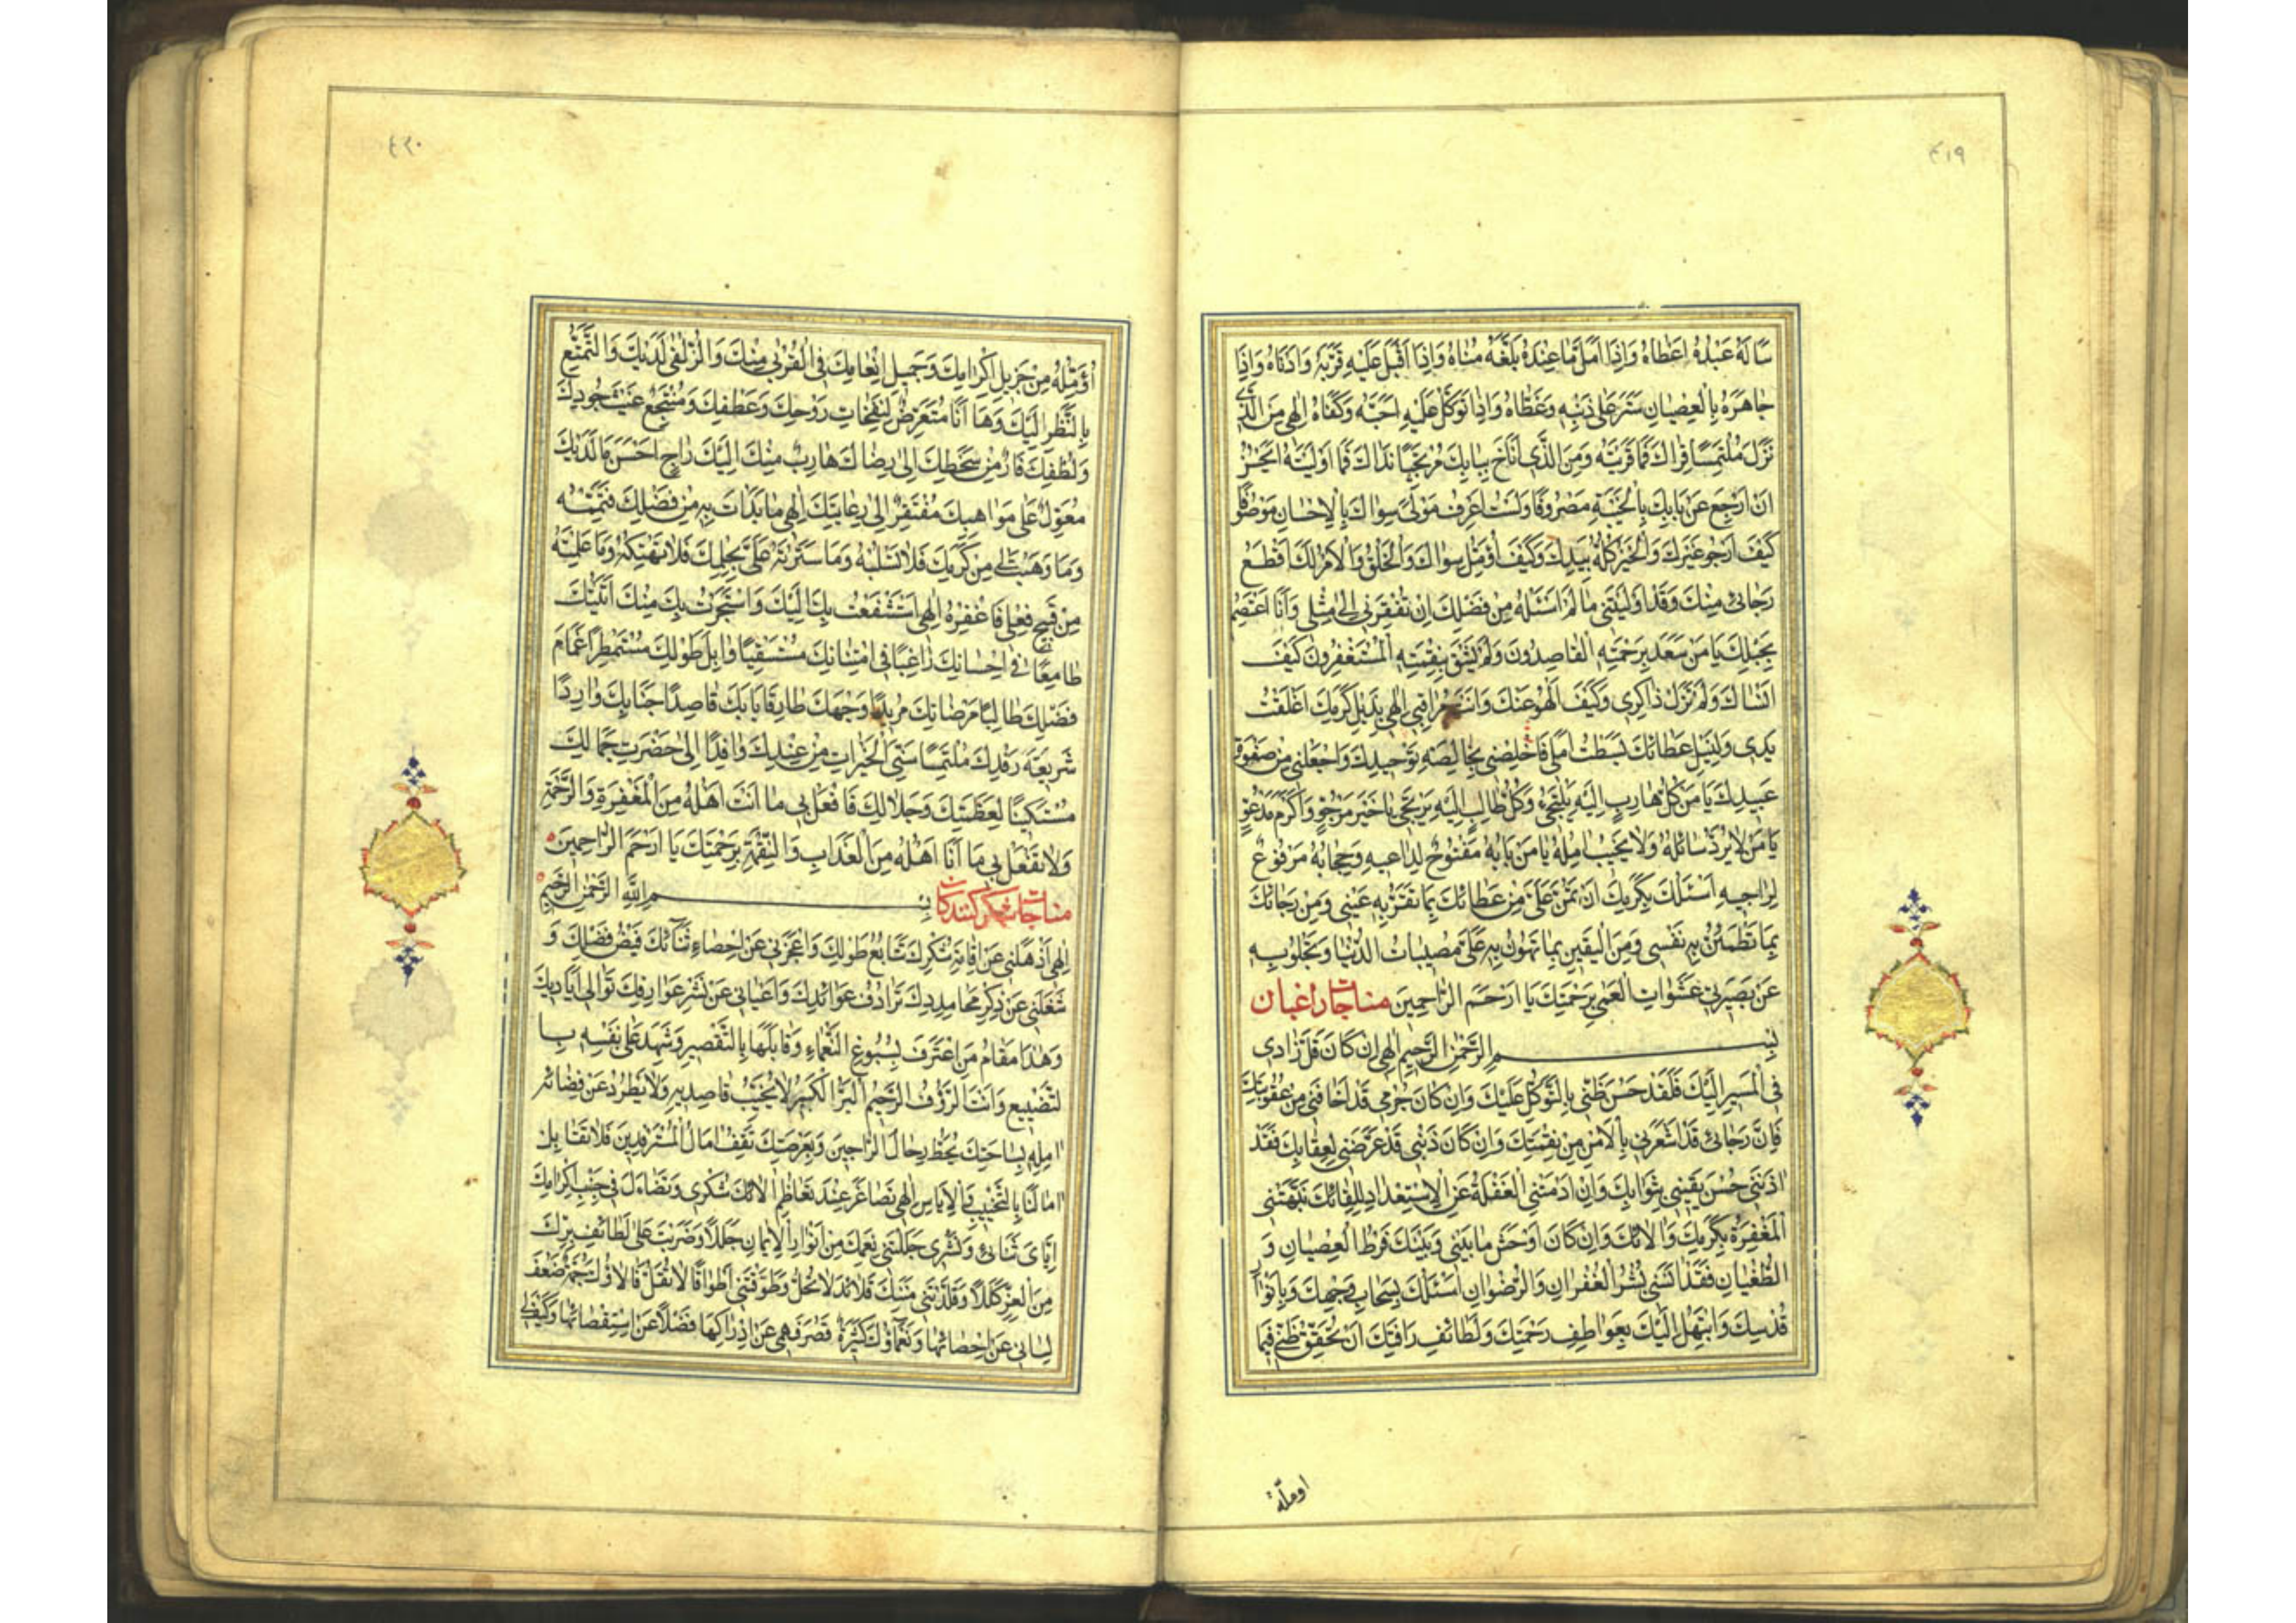 ٤١٩
سَأَلَهُ عَبْدُهُ اَعْطَاهُ وَاِذَا اَمَّلَ مَا عِنْدَهُ بَلَّغَهُ مُنَاهُ وَاِذَا اَقْبَلَ عَلَيْهِ قَرَّبَهُ وَاَدْنَاهُ وَاِذَا
جَاهَرَهُ بِالْعِصْيَانِ سَتَرَ عَلَى ذَنْبِهِ وَغَطَّاهُ وَاِذَا تَوَكَّلَ عَلَيْهِ اَحَبَّهُ وَكَفَاهُ اِلٰهِي مَنِ الَّذِي
نَزَلَ مُلْتَمِسًا قِرَاكَ فَمَا قَرَيْتَهُ وَمَنِ الَّذِي اَنَاخَ بِبَابِكَ مُرْتَجِيًا نَدَاكَ فَمَا اَوْلَيْتَهُ اَيَحْسُنُ
اَنْ اَرْجِعَ عَنْ بَابِكَ بِالْخَيْبَةِ مَصْرُوفًا وَلَسْتُ اَعْرِفُ مَوْلًى سِوَاكَ بِالْاِحْسَانِ مَوْصُوفًا
كَيْفَ اَرْجُو غَيْرَكَ وَالْخَيْرُ كُلُّهُ بِيَدِكَ وَكَيْفَ اُؤَمِّلُ سِوَاكَ وَالْخَلْقُ وَالْاَمْرُ لَكَ اَقْطَعُ
رَجَائِي مِنْكَ وَقَدْ اَوْلَيْتَنِي مَا لَمْ اَسْئَلْهُ مِنْ فَضْلِكَ اِنْ تُفْقِرُنِي اِلَى مِثْلِي وَاَنَا اَعْتَصِمُ
بِحَبْلِكَ يَا مَنْ سَعَدَ بِرَحْمَتِهِ الْقَاصِدُونَ وَلَمْ يَشْقَ بِنِقْمَتِهِ الْمُسْتَغْفِرُونَ كَيْفَ
اَنْسَاكَ وَلَمْ تَزَلْ ذَاكِرِي وَكَيْفَ اَلْهُو عَنْكَ وَاَنْتَ مُرَاقِبِي اِلٰهِي بِذَيْلِ كَرَمِكَ اَعْلَقْتُ
يَدِي وَلِنَيْلِ عَطَائِكَ بَسَطْتُ اَمَلِي فَاَخْلِصْنِي بِخَالِصَةِ تَوْحِيدِكَ وَاجْعَلْنِي مِنْ صَفْوَةِ
عَبِيدِكَ يَا مَنْ كُلُّ هَارِبٍ اِلَيْهِ يَلْتَجِئُ وَكُلُّ طَالِبٍ اِلَيْهِ يَرْتَجِي يَا خَيْرَ مَرْجُوٍّ وَاَكْرَمَ مَدْعُوٍّ
يَا مَنْ لَا يُرَدُّ سَائِلُهُ وَلَا يُخَيَّبُ اٰمِلُهُ يَا مَنْ بَابُهُ مَفْتُوحٌ لِدَاعِيهِ وَحِجَابُهُ مَرْفُوعٌ
لِرَاجِيهِ اَسْئَلُكَ بِكَرَمِكَ اَنْ تَمُنَّ عَلَيَّ مِنْ عَطَائِكَ بِمَا تَقَرُّ بِهِ عَيْنِي وَمِنْ رَجَائِكَ
بِمَا تَطْمَئِنُّ بِهِ نَفْسِي وَمِنَ الْيَقِينِ بِمَا تُهَوِّنُ بِهِ عَلَيَّ مُصِيبَاتِ الدُّنْيَا وَتَجْلُو بِهِ
عَنْ بَصِيرَتِي غَشَوَاتِ الْعَمَى بِرَحْمَتِكَ يَا اَرْحَمَ الرَّاحِمِينَ مناجات راغبان
بِسْمِ الرَّحْمٰنِ الرَّحِيمِ اِلٰهِي اِنْ كَانَ قَلَّ زَادِي
فِي الْمَسِيرِ اِلَيْكَ فَلَقَدْ حَسُنَ ظَنِّي بِالتَّوَكُّلِ عَلَيْكَ وَاِنْ كَانَ جُرْمِي قَدْ اَخَافَنِي مِنْ عُقُوبَتِكَ
فَاِنَّ رَجَائِي قَدْ اَشْعَرَنِي بِالْاَمْنِ مِنْ نِقْمَتِكَ وَاِنْ كَانَ ذَنْبِي قَدْ عَرَّضَنِي لِعِقَابِكَ فَقَدْ
اٰذَنَنِي حُسْنُ يَقِينِي بِثَوَابِكَ وَاِنْ اَنَامَتْنِي الْغَفْلَةُ عَنِ الْاِسْتِعْدَادِ لِلِقَائِكَ نَبَّهَتْنِي
الْمَغْفِرَةُ بِكَرَمِكَ وَاٰلَائِكَ وَاِنْ كَانَ اَوْحَشَ مَا بَيْنِي وَبَيْنَكَ فَرْطُ الْعِصْيَانِ وَ
الطُّغْيَانِ فَقَدْ اٰنَسَنِي بُشْرَى الْغُفْرَانِ وَالرِّضْوَانِ اَسْئَلُكَ بِسُبُحَاتِ وَجْهِكَ وَبِاَنْوَارِ
قُدْسِكَ وَاَبْتَهِلُ اِلَيْكَ بِعَوَاطِفِ رَحْمَتِكَ وَلَطَائِفِ رَأْفَتِكَ اَنْ تُحَقِّقَ ظَنِّي فِيمَا
اومله
٤٢٠
اُؤَمِّلُهُ مِنْ جَزِيلِ اِكْرَامِكَ وَجَمِيلِ اِنْعَامِكَ فِي الْقُرْبَى مِنْكَ وَالزُّلْفَى لَدَيْكَ وَالتَّمَتُّعِ
بِالنَّظَرِ اِلَيْكَ وَهَا اَنَا مُتَعَرِّضٌ لِنَفَحَاتِ رَوْحِكَ وَعَطْفِكَ وَمُنْتَجِعٌ غَيْثَ جُودِكَ
وَلُطْفِكَ فَارٌّ مِنْ سَخَطِكَ اِلَى رِضَاكَ هَارِبٌ مِنْكَ اِلَيْكَ رَاجٍ اَحْسَنَ مَا لَدَيْكَ
مُعَوِّلٌ عَلَى مَوَاهِبِكَ مُفْتَقِرٌ اِلَى رِعَايَتِكَ اِلٰهِي مَا بَدَأْتَ بِهِ مِنْ فَضْلِكَ فَتَمِّمْهُ
وَمَا وَهَبْتَ لِي مِنْ كَرَمِكَ فَلَا تَسْلُبْهُ وَمَا سَتَرْتَهُ عَلَيَّ بِحِلْمِكَ فَلَا تَهْتِكْهُ وَمَا عَلِمْتَهُ
مِنْ قَبِيحِ فِعْلِي فَاغْفِرْهُ اِلٰهِي اسْتَشْفَعْتُ بِكَ اِلَيْكَ وَاسْتَجَرْتُ بِكَ مِنْكَ اَتَيْتُكَ
طَامِعًا فِي اِحْسَانِكَ رَاغِبًا فِي امْتِنَانِكَ مُسْتَسْقِيًا وَابِلَ طَوْلِكَ مُسْتَمْطِرًا غَمَامَ
فَضْلِكَ طَالِبًا مَرْضَاتِكَ مُرِيدًا وَجْهَكَ طَارِقًا بَابَكَ قَاصِدًا جَنَابَكَ وَارِدًا
شَرِيعَةَ رِفْدِكَ مُلْتَمِسًا سَنِيَّ الْخَيْرَاتِ مِنْ عِنْدِكَ وَافِدًا اِلَى حَضْرَتِ جَمَالِكَ
مُسْتَكِينًا لِعَظَمَتِكَ وَجَلَالِكَ فَافْعَلْ بِي مَا اَنْتَ اَهْلُهُ مِنَ الْمَغْفِرَةِ وَالرَّحْمَةِ
وَلَا تَفْعَلْ بِي مَا اَنَا اَهْلُهُ مِنَ الْعَذَابِ وَالنِّقْمَةِ بِرَحْمَتِكَ يَا اَرْحَمَ الرَّاحِمِينَ
مناجات شكر كنندكان بِسْمِ اللّٰهِ الرَّحْمٰنِ الرَّحِيمِ
اِلٰهِي اَذْهَلَنِي عَنْ اِقَامَةِ شُكْرِكَ تَتَابُعُ طَوْلِكَ وَاَعْجَزَنِي عَنْ اِحْصَاءِ ثَنَائِكَ فَيْضُ فَضْلِكَ وَ
شَغَلَنِي عَنْ ذِكْرِ مَحَامِدِكَ تَرَادُفُ عَوَائِدِكَ وَاَعْيَانِي عَنْ نَشْرِ عَوَارِفِكَ تَوَالِي اَيَادِيكَ
وَهٰذَا مَقَامُ مَنِ اعْتَرَفَ بِسُبُوغِ النَّعْمَاءِ وَقَابَلَهَا بِالتَّقْصِيرِ وَشَهِدَ عَلَى نَفْسِهِ بِا
لتَّضْيِيعِ وَاَنْتَ الرَّؤُفُ الرَّحِيمُ الْبَرُّ الْكَرِيمُ لَا يُخَيِّبُ قَاصِدِيهِ وَلَا يَطْرُدُ عَنْ فِنَائِهِ
اٰمِلِيهِ بِسَاحَتِكَ تَحُطُّ رِحَالُ الرَّاجِينَ وَبِعَرْصَتِكَ تَقِفُ اٰمَالُ الْمُسْتَرْفِدِينَ فَلَا تُقَابِلْ
اٰمَالَنَا بِالتَّخْيِيبِ وَالْاِيَاسِ اِلٰهِي تَصَاغَرَ عِنْدَ تَعَاظُمِ اٰلَائِكَ شُكْرِي وَتَضَاءَلَ فِي جَنْبِ اِكْرَامِكَ
اِيَّايَ ثَنَائِي وَنَشْرِي جَلَّلَتْنِي نِعَمُكَ مِنْ اَنْوَارِ الْاِيمَانِ حُلَلًا وَضَرَبَتْ عَلَيَّ لَطَائِفُ بِرِّكَ
مِنَ الْعِزِّ كِلَلًا وَقَلَّدَتْنِي مِنَنُكَ قَلَائِدَ لَا تُحَلُّ وَطَوَّقَتْنِي اَطْوَاقًا لَا تُفَلُّ فَاٰلَاؤُكَ جَمَّةٌ ضَعُفَ
لِسَانِي عَنْ اِحْصَائِهَا وَنَعْمَاؤُكَ كَثِيرَةٌ قَصُرَ فَهْمِي عَنْ اِدْرَاكِهَا فَضْلًا عَنِ اسْتِقْصَائِهَا وَكَيْفَ لِي